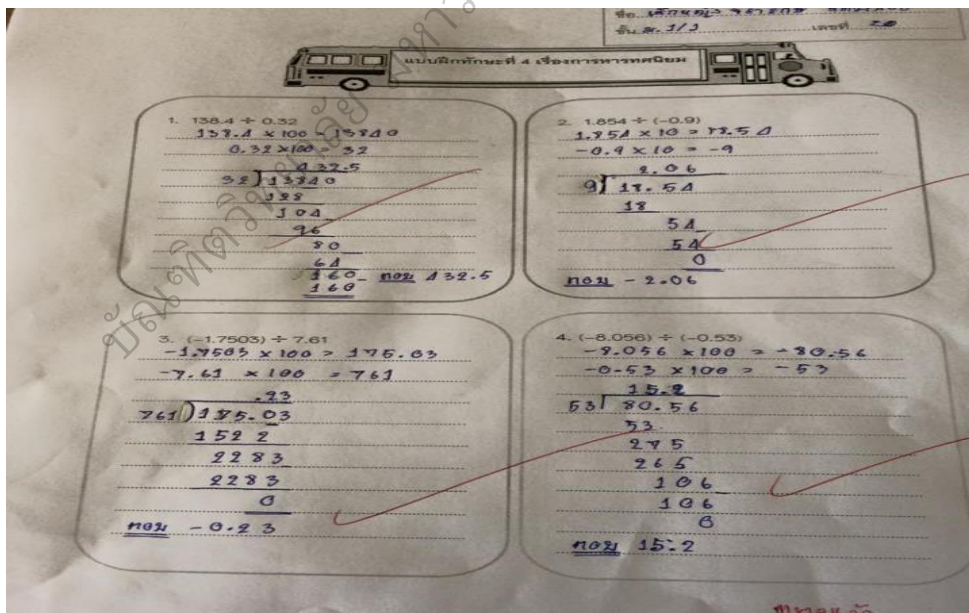 ชั้น ม.1/1 เลขที่ 20
แบบฝึกทักษะที่ 4 เรื่องการหารทศนิยม
1. 138.4 ÷ 0.32
138.4 × 100 = 13840
0.32 × 100 = 32
432.5
32 13840
128
104
96
80
64
160 ตอบ 432.5
160
2. 1.854 ÷ (-0.9)
1.854 × 10 = 18.54
-0.9 × 10 = -9
2.06
9 18.54
18
54
54
0
ตอบ - 2.06
3. (-1.7503) ÷ 7.61
-1.7503 × 100 = 175.03
-7.61 × 100 = 761
.23
761 175.03
1522
2283
2283
0
ตอบ - 0.23
4. (-8.056) ÷ (-0.53)
-8.056 × 100 = -80.56
-0.53 × 100 = -53
15.2
53 80.56
53
275
265
106
106
0
ตอบ 15.2